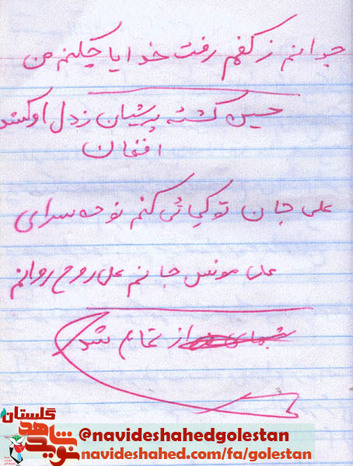 جوانم ز کفم رفت خدایا چکنم من
حسین گشته پریشان ز دل او کند
افغان
علی جان تو کجائی کنم نوحه سرای
علی مونس جانم علی روح روانم
از تمام شد
گلستان
نوید شاهد
@navideshahedgolestan
navideshahed.com/fa/golestan